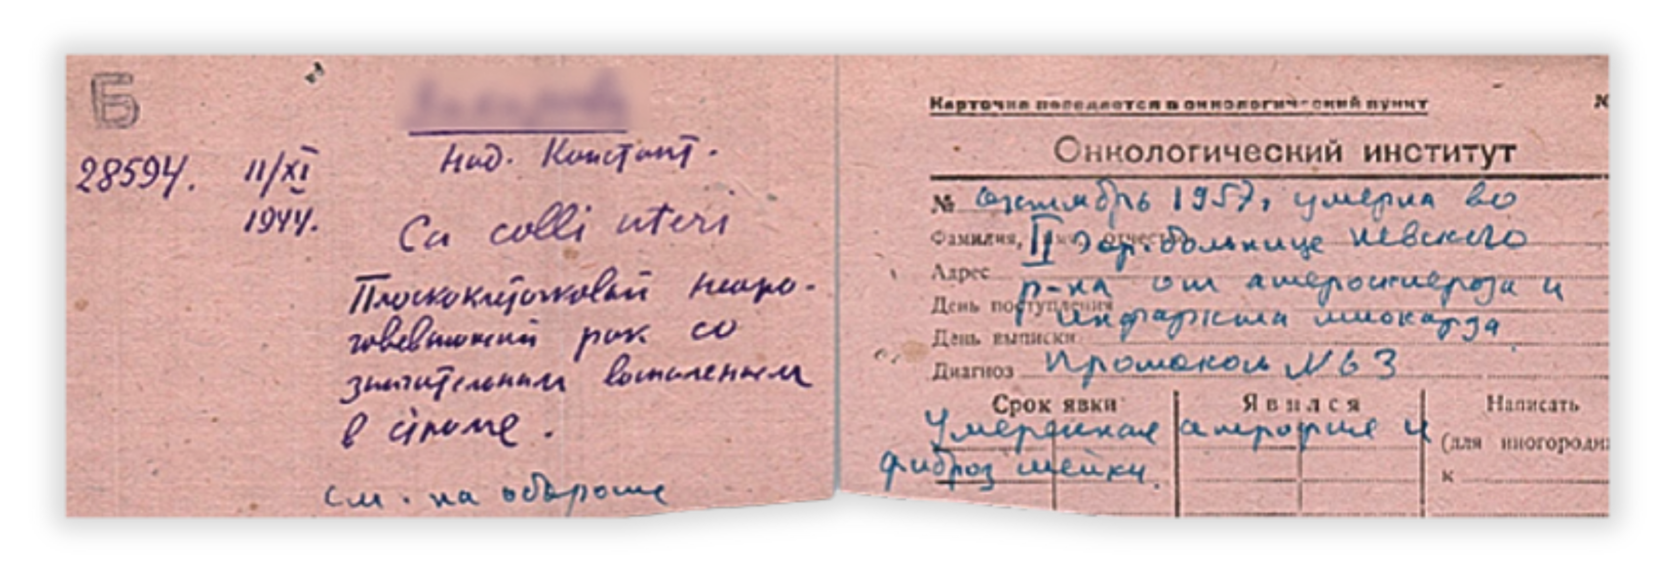 Б
28594. 11/XI
1944.
Над. Констант.
Ca colli uteri
Плоскоклеточковый неоро-
говевающий рак со
значительным воспалением
в строме.
см. на обороте
Карточка передается в онкологический пункт
№
Онкологический институт
№ октябрь 1957, умерла во
Фамилия, отчество II гор. больнице Невского
Адрес р-на от атеросклероза и
День поступления инфаркта миокарда
День выписки
Диагноз Протокол N 63
Срок явки Явился Написать
Умеренная атрофия и (для иногородн
фиброз шейки. к